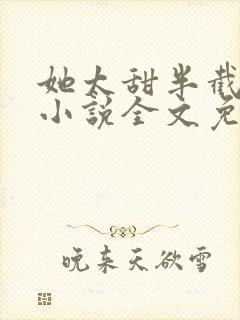 她太甜半截
小说全文免
晚来天欲雪